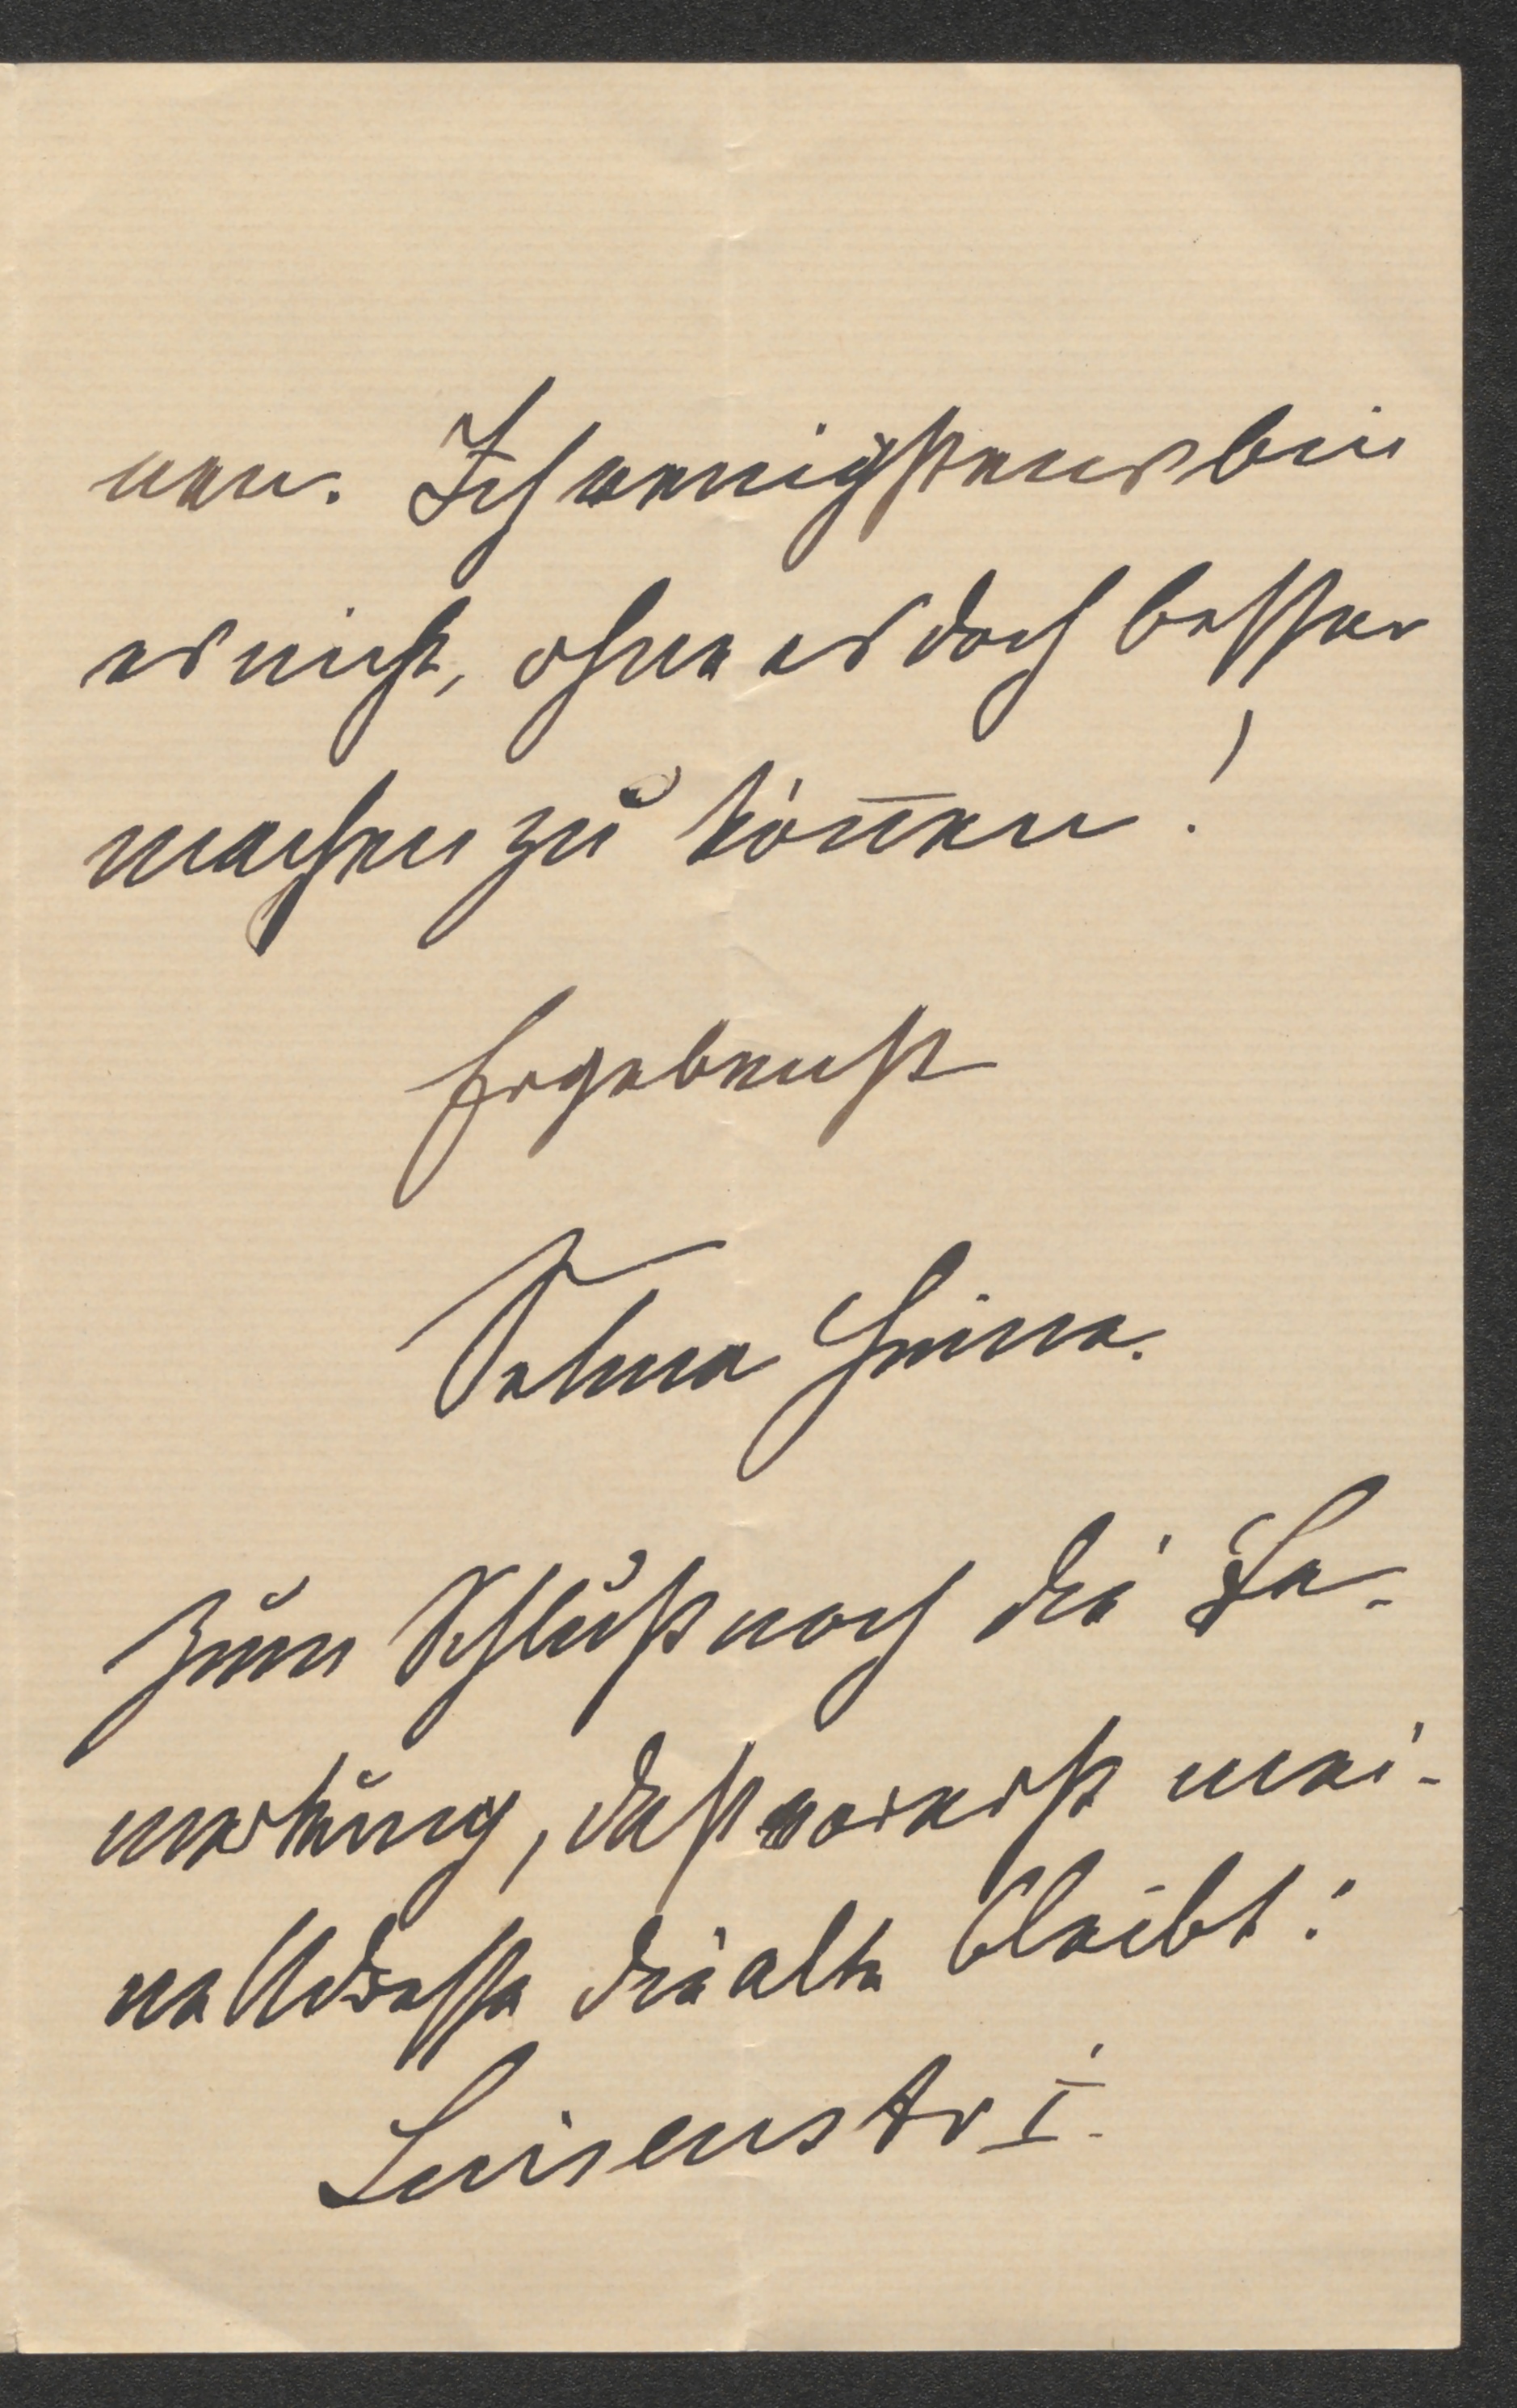 nen. Ich wenigstens bin
es nicht, ohne es doch besser
machen zu können!
Ergebenst
Selma Heine.
Zum Schluß noch die Be-
merkung, daß vorerst mei-
ne Adresse die alte bleibt:
Luisenstr I.